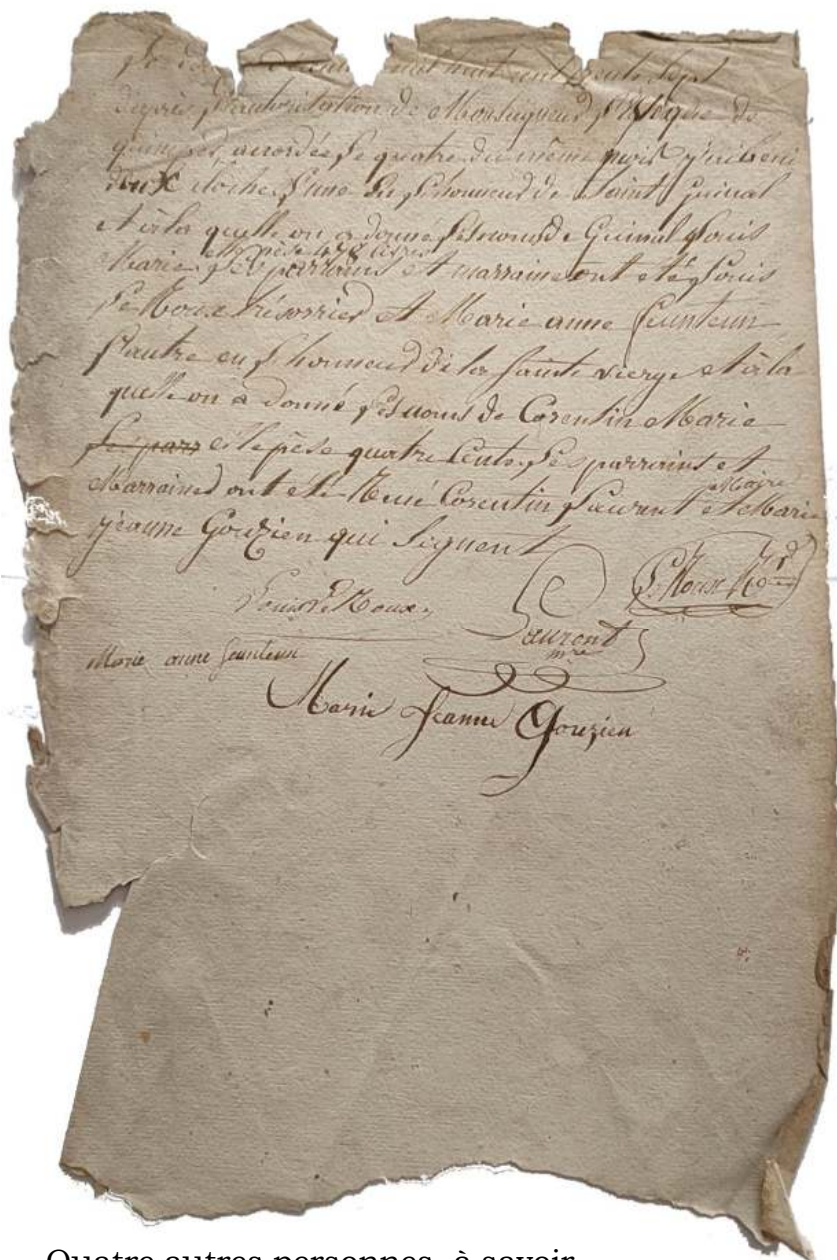 mil huit cent trente sept
d'après l'autorisation de Monseigneur l'Evêque de
quimper, accordée le quatre du même mois j'ai béni
deux cloches l'une en l'honneur de Saint Guinal
et à la quelle on a donné les noms de Guinal Louis
elle pèse 478 livres
Marie, les parrains et marraine ont été Louis
Le Roux trésorier et Marie anne feunteun
L'autre en l'honneur de la sainte vierge et à la
quelle on a donné les noms de Corentin Marie
Les parr elle pèse quatre cents, Les parrains et
Maire
Marraines ont été René Corentin Laurent et Marie
jeanne Gouzien qui signent
Louis Le Roux
Le Roux
Laurent
mre
Marie anne feunteun
Marie Jeanne Gouzien
Quatre autres personnes, à savoir